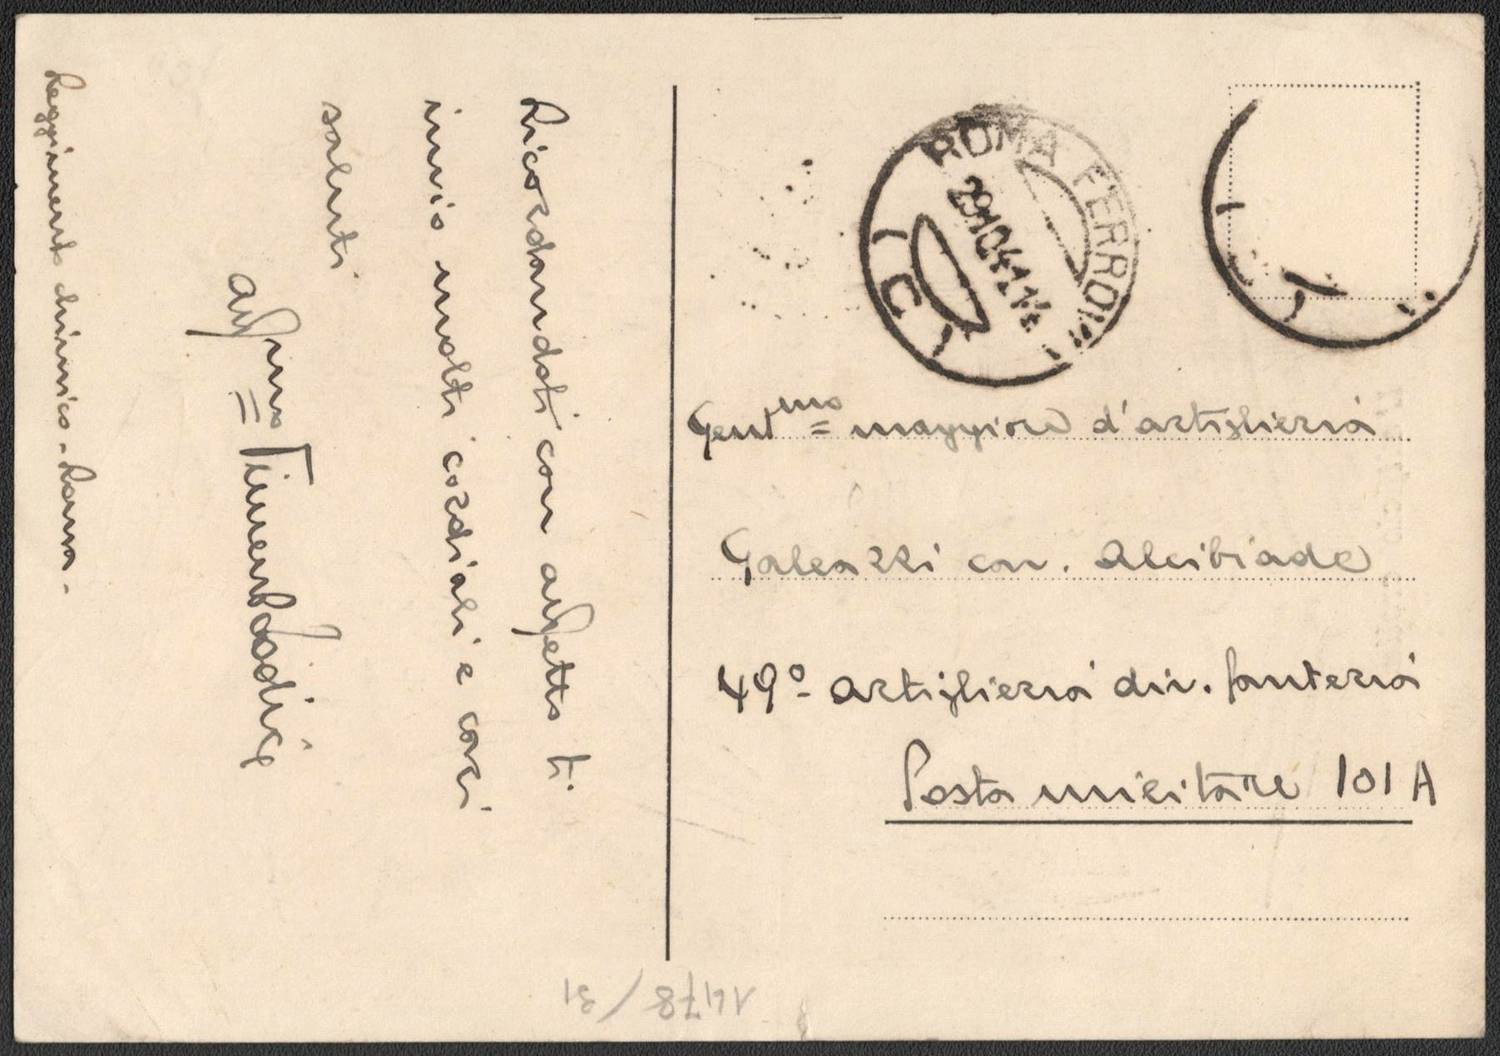 Ricordandoti con affetto ti
invio molti cordiali e cari
saluti.
aff/mo
Reggimento chimico - Roma.
ROMA FERROVIA
29.10.41.14
Gent.mo maggiore d'artiglieria
Galeazzi cav. Alcibiade
49º artiglieria div. fanteria
Posta militare 101 A
1478/31